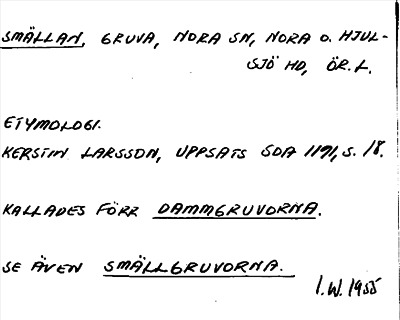 SMÄLLAN, GRUVA, NORA SN, NORA O. HJUL-
SJÖ HD, ÖR. L.
ETYMOLOGI.
KERSTIN LARSSON, UPPSATS SOA 1191, S. 18.
KALLADES FÖRR DAMMGRUVORNA.
SE ÄVEN SMÄLLGRUVORNA.
I.W. 1955